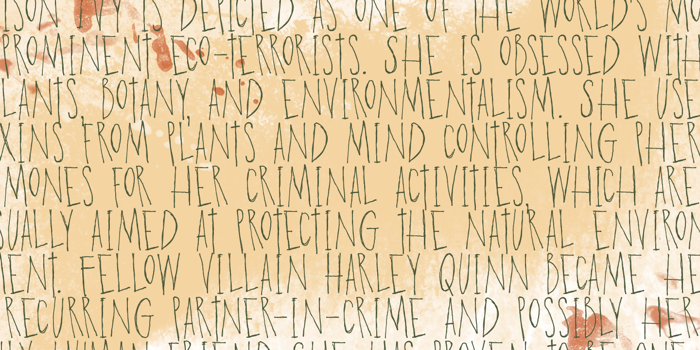 ISON IVY IS DEPICTED AS ONE OF THE WORLD'S MO
PROMINENT ECO-TERRORISTS. SHE IS OBSESSED WITH
LANTS, BOTANY, AND ENVIRONMENTALISM. SHE USE
XINS FROM PLANTS AND MIND CONTROLLING PHER
MONES FOR HER CRIMINAL ACTIVITIES, WHICH ARE
SUALLY AIMED AT PROTECTING THE NATURAL ENVIRON
ENT. FELLOW VILLAIN HARLEY QUINN BECAME HE
RECURRING PARTNER-IN-CRIME AND POSSIBLY HER
LY HUMAN FRIEND SHE HAS PROVEN TO BE ONE